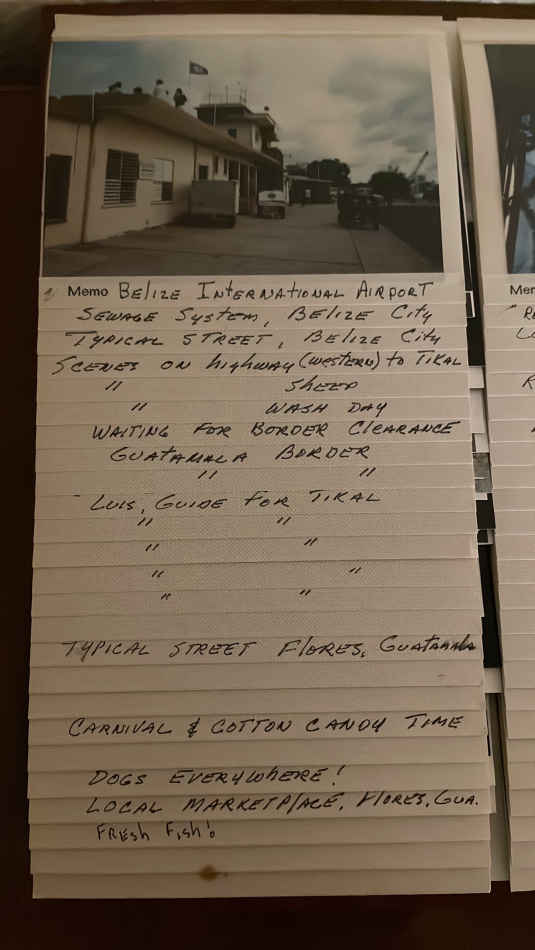 Memo BELIZE INTERNATIONAL AIRPORT
SEWAGE SYSTEM, BELIZE CITY
TYPICAL STREET, BELIZE CITY
SCENES ON highway (WESTERN) to TIKAL
" SHEEP
" WASH DAY
WAITING FOR BORDER CLEARANCE
GUATAMALA BORDER
" "
LUIS, GUIDE FOR TIKAL
" "
" "
" "
" "
TYPICAL STREET FLORES, GUATAMALA
CARNIVAL & COTTON CANDY TIME
DOGS EVERYWHERE!
LOCAL MARKETPLACE, FLORES, GUA.
FRESH FISH!